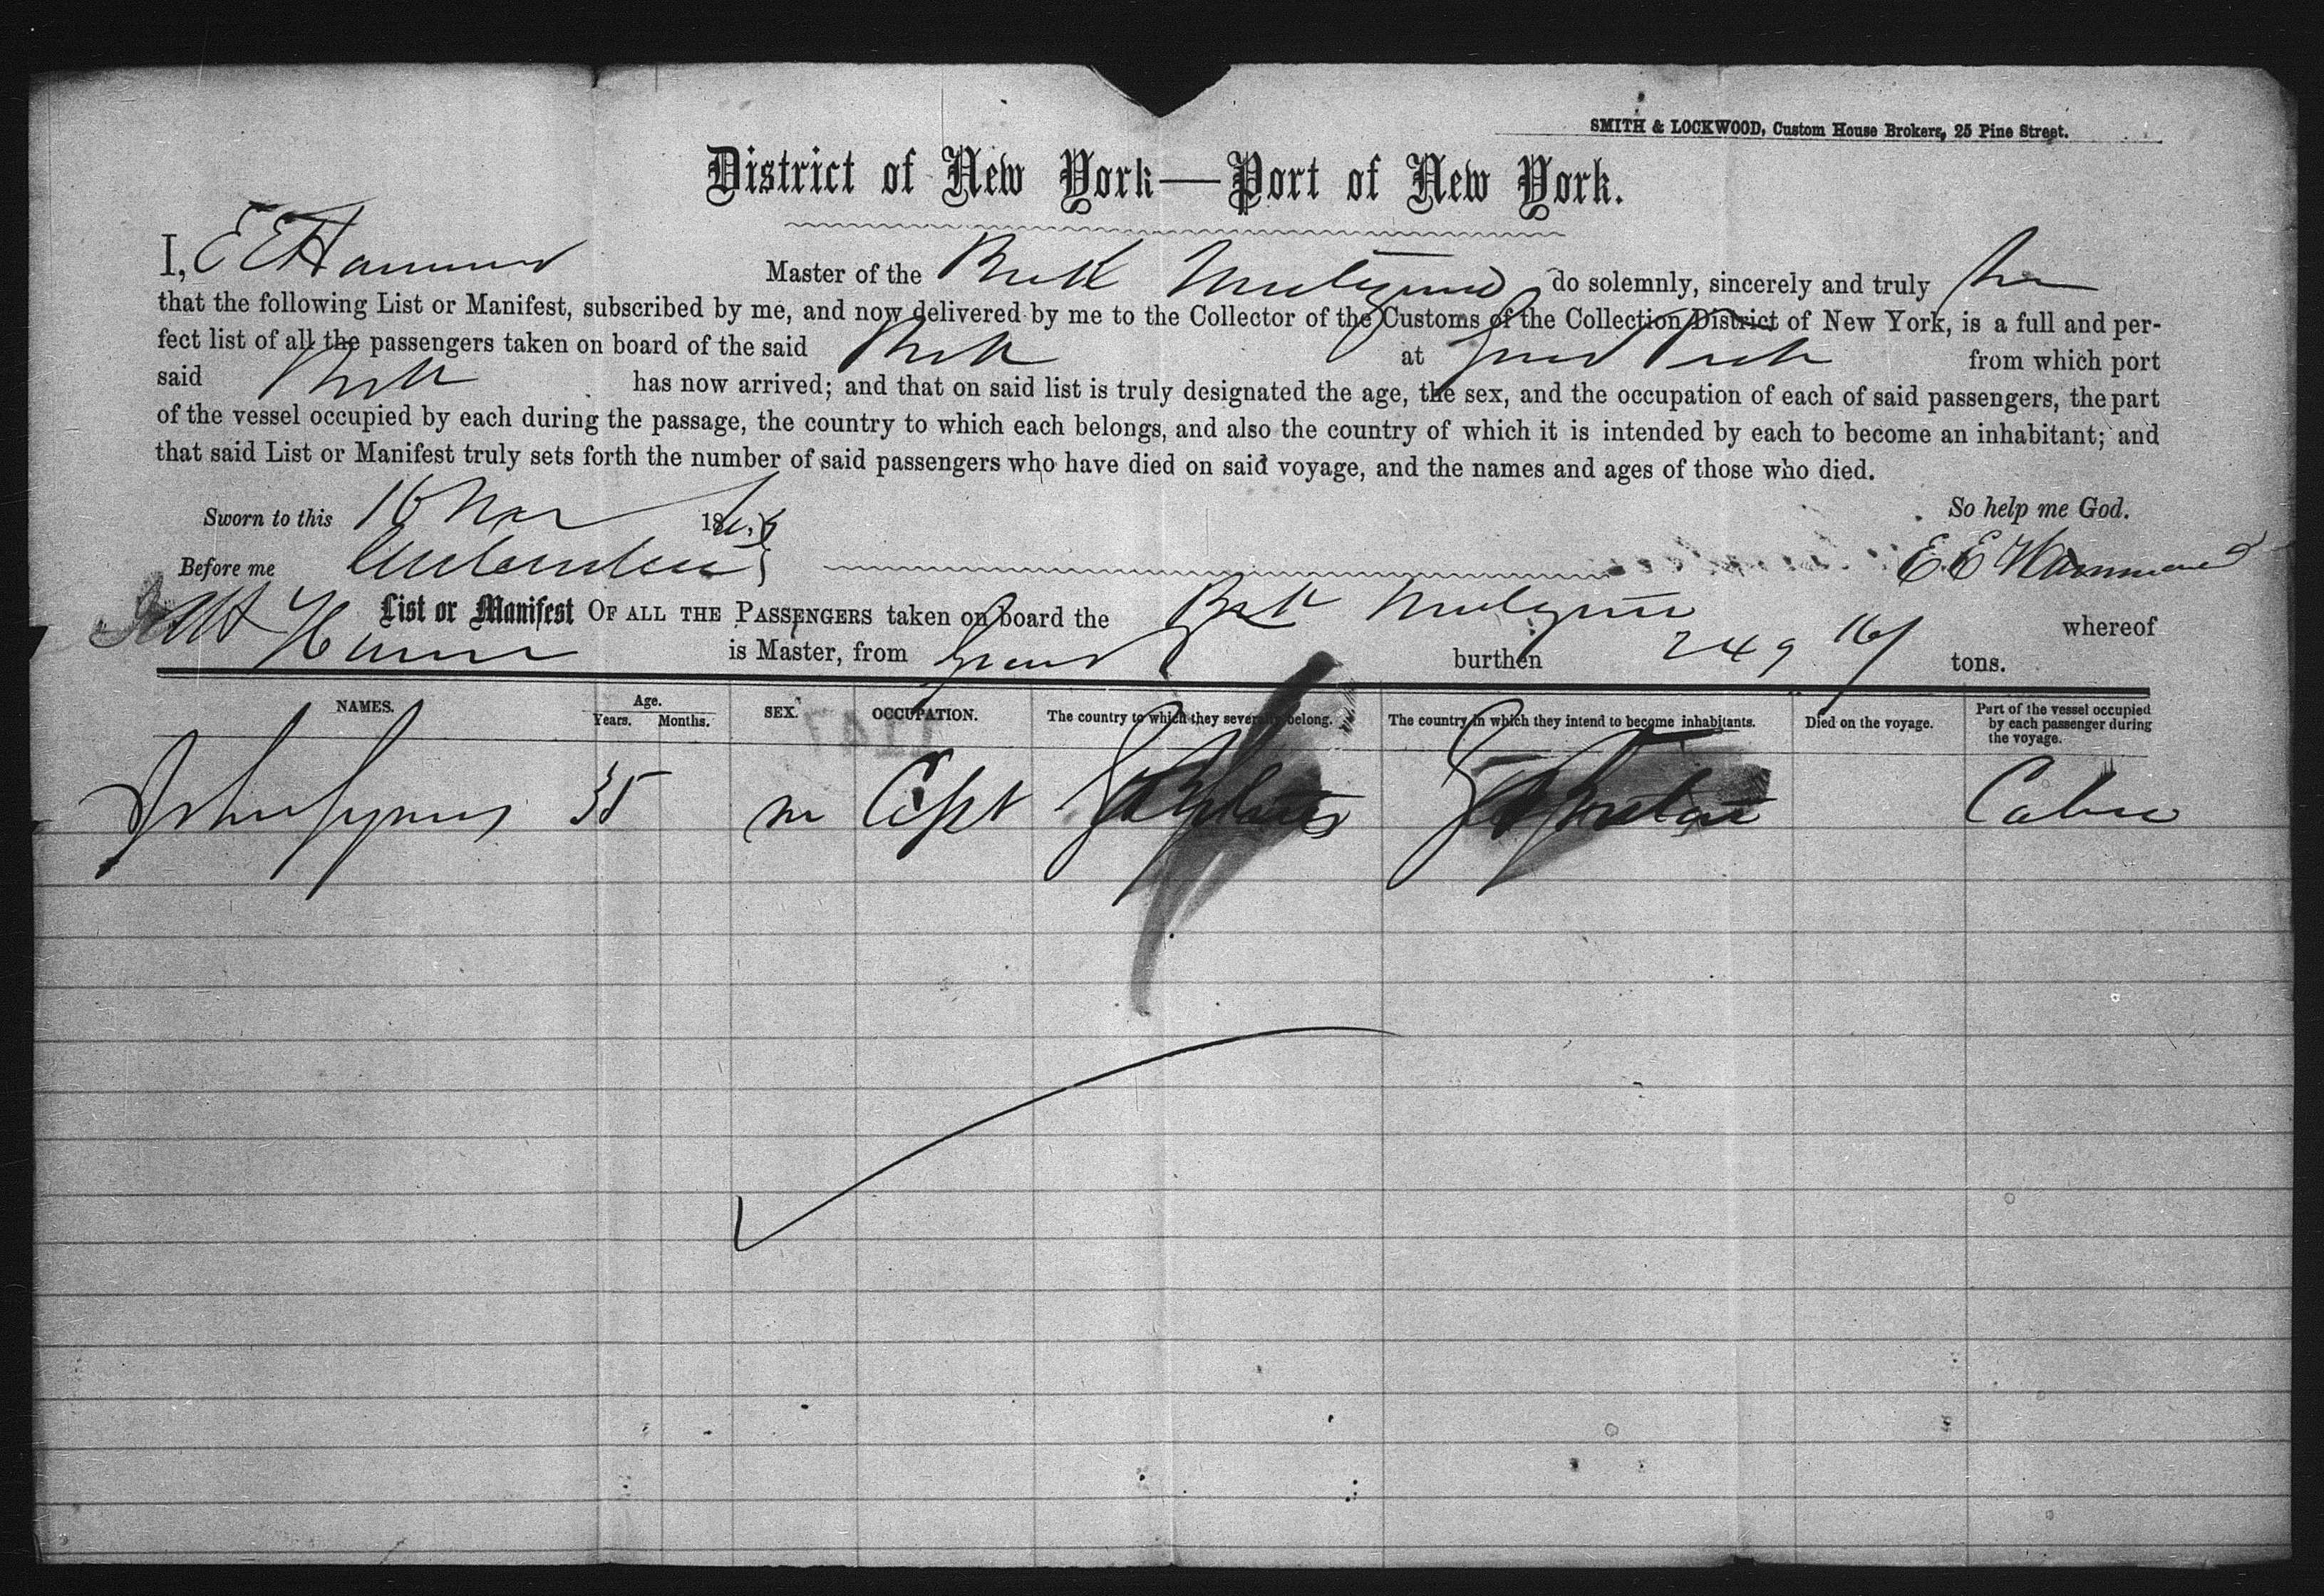 SMITH & LOCKWOOD, Custom House Brokers, 25 Pine Street.
District of New York—Port of New York.
I, E E Hammond Master of the do solemnly, sincerely and truly
that the following List or Manifest, subscribed by me, and now delivered by me to the Collector of the Customs of the Collection District of New York, is a full and per-
fect list of all the passengers taken on board of the said at from which port
said has now arrived; and that on said list is truly designated the age, the sex, and the occupation of each of said passengers, the part
of the vessel occupied by each during the passage, the country to which each belongs, and also the country of which it is intended by each to become an inhabitant; and
that said List or Manifest truly sets forth the number of said passengers who have died on said voyage, and the names and ages of those who died.
Sworn to this 16 Nov 18 So help me God.
Before me E E Hammond
List or Manifest OF ALL THE PASSENGERS taken on board the whereof
is Master, from burthen 249 tons.
NAMES. Age. Years. Months. SEX. OCCUPATION. The country to which they severally belong. The country in which they intend to become inhabitants. Died on the voyage. Part of the vessel occupied by each passenger during the voyage.
35 m Capt Cabin